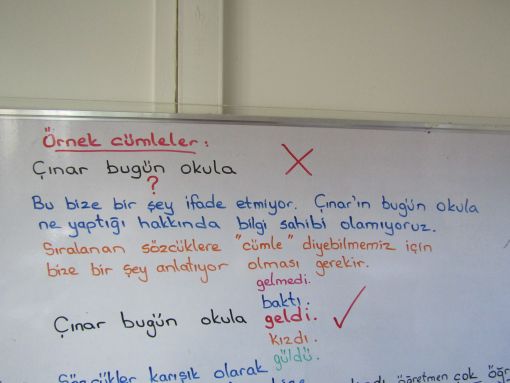 Örnek cümleler:
Çınar bugün okula
?
Bu bize bir şey ifade etmiyor. Çınar'ın bugün okula
ne yaptığı hakkında bilgi sahibi olamıyoruz.
Sıralanan sözcüklere "cümle" diyebilmemiz için
bize bir şey anlatıyor olması gerekir.
gelmedi.
baktı.
Çınar bugün okula geldi.
kızdı.
güldü.
Sözcükler karışık olarak
öğretmen çok